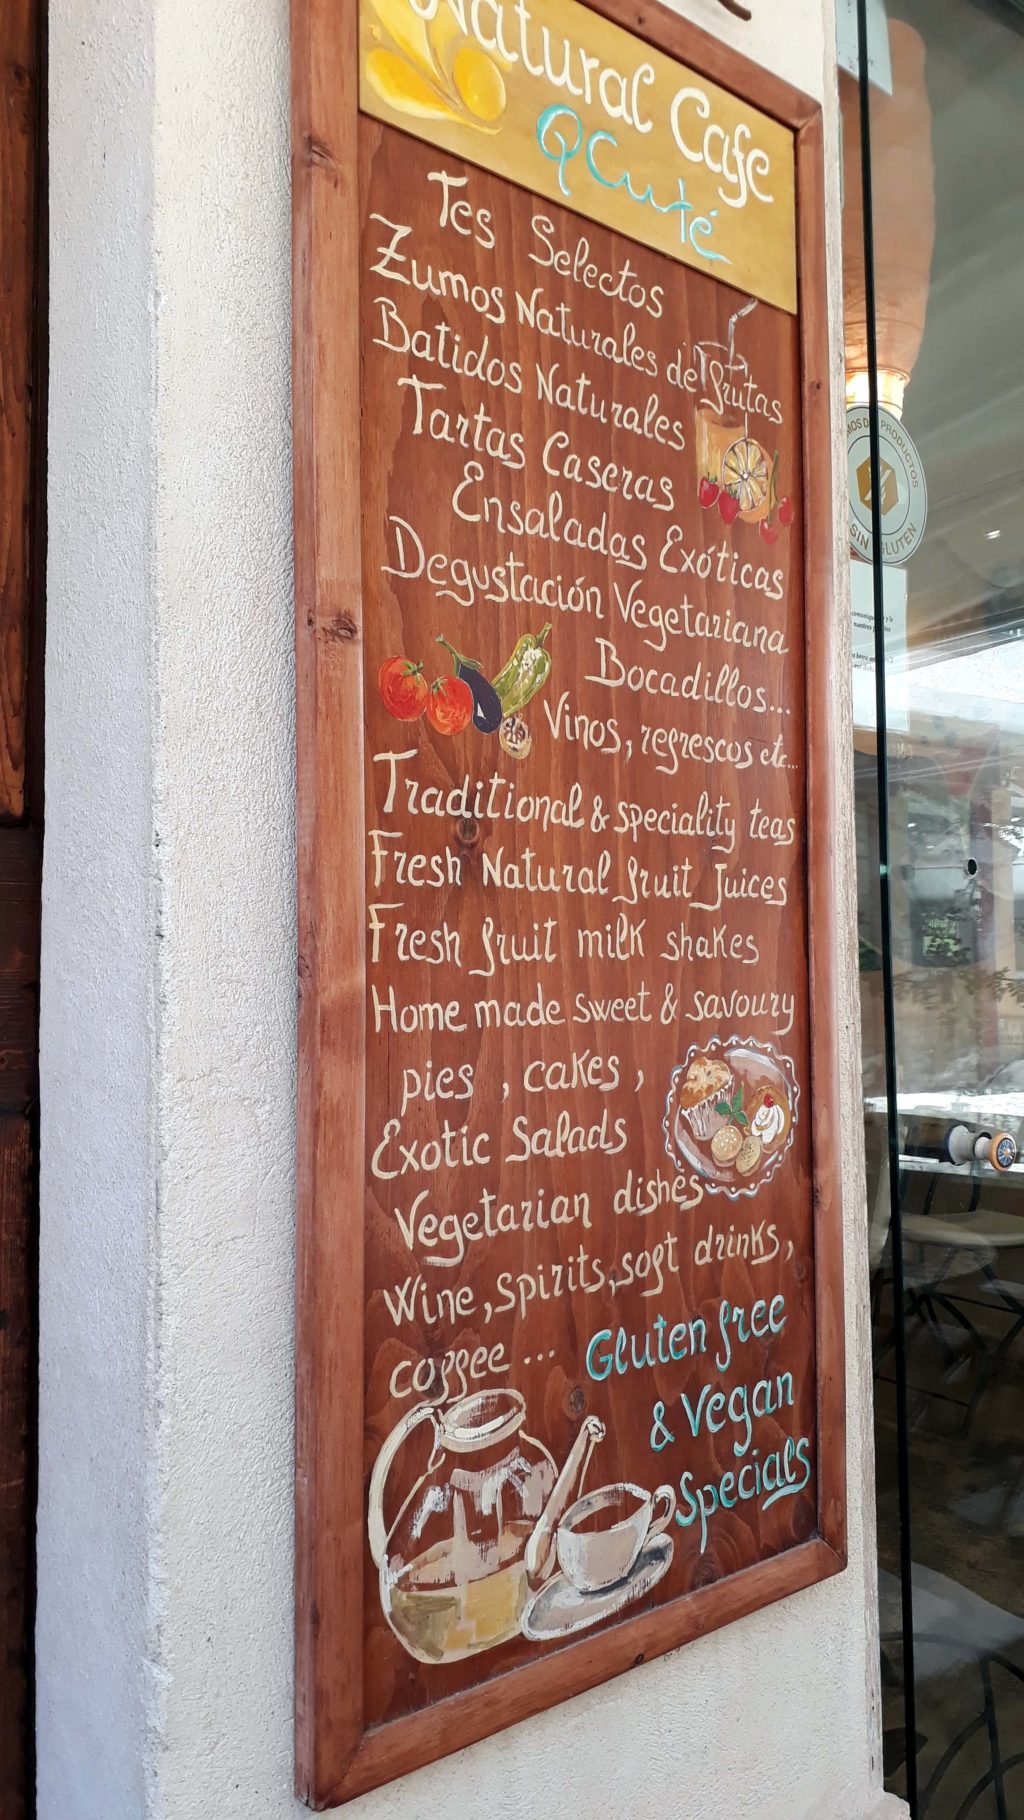 Natural Cafe
QCuté
Tes Selectos
Zumos Naturales de frutas
Batidos Naturales
Tartas Caseras
Ensaladas Exóticas
Degustación Vegetariana
Bocadillos...
Vinos, refrescos etc...
Traditional & speciality teas
Fresh Natural fruit Juices
Fresh fruit milk shakes
Home made sweet & savoury
pies , cakes ,
Exotic Salads
Vegetarian dishes
Wine, spirits, soft drinks,
coffee ...
Gluten free
& Vegan
Specials
PRODUCTOS
SIN GLUTEN